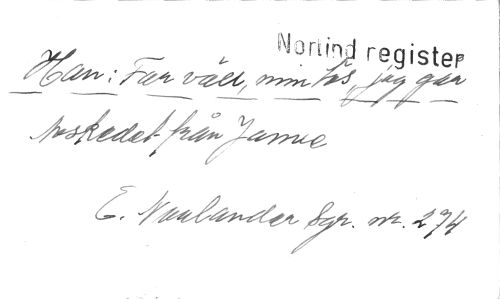 Norlind register
Han: Far väll, min tös, jag går
Avskedet från Jamie
E. Naulander Sgr. nr. 274